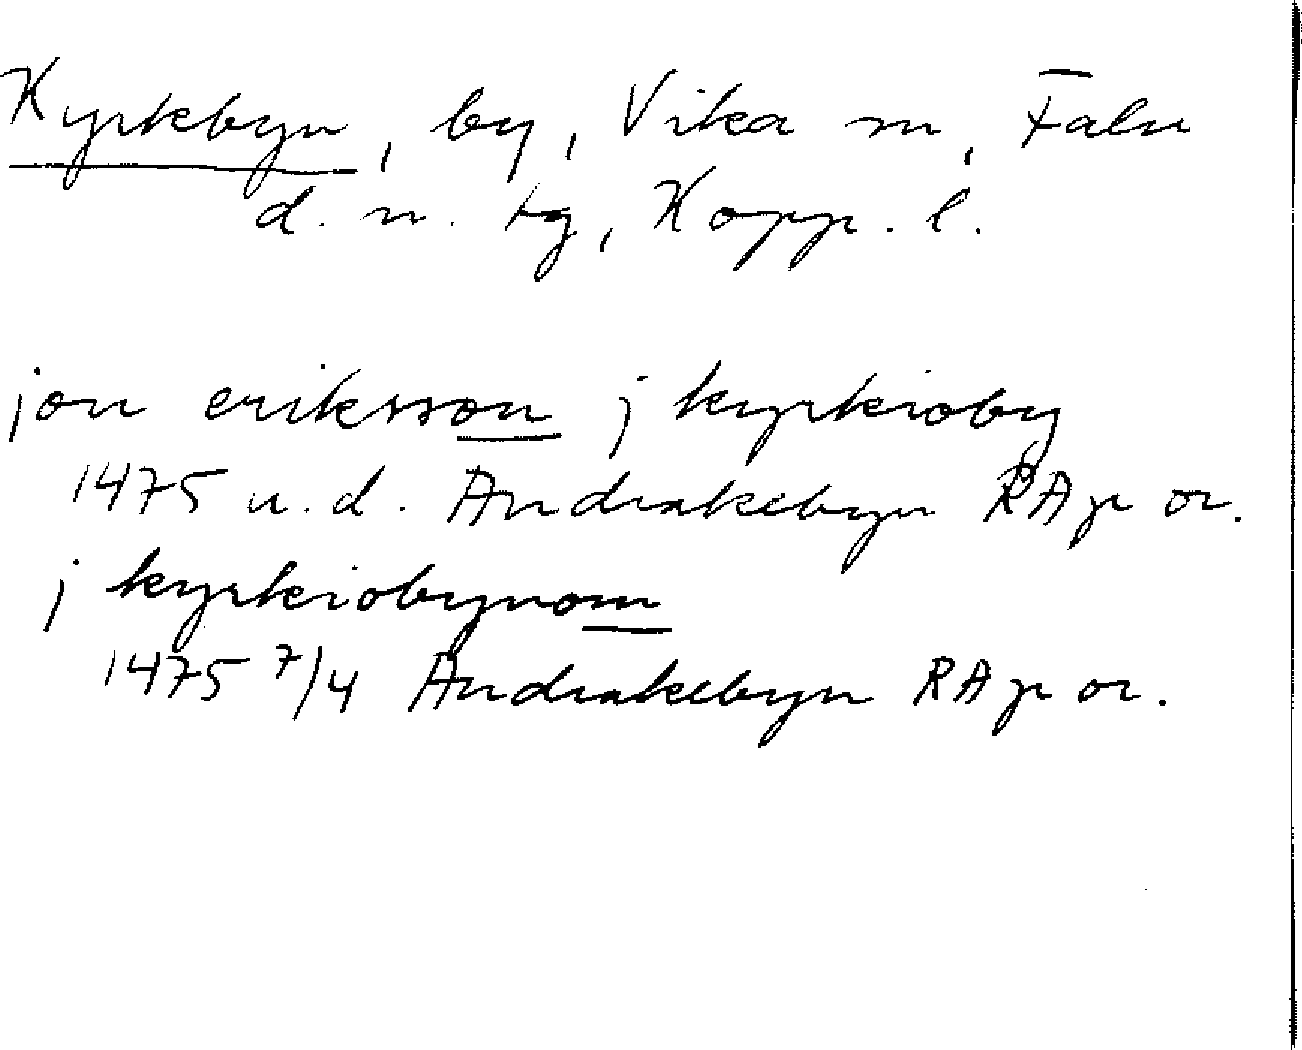 Kyrkbyn, by, Vika sn, Falu
d. n. tg, Kopp. l.
jon eriksson j kyrkioby
1475 u. d. Andrakebyn RAp or.
j kyrkiobynom
1475 7/4 Andrakebyn RAp or.